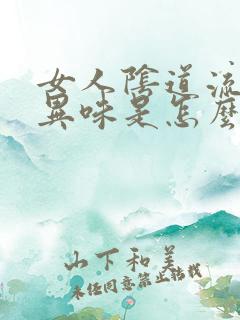 女人陰道流
異味是怎麼
山下和美
未經同意禁止轉載